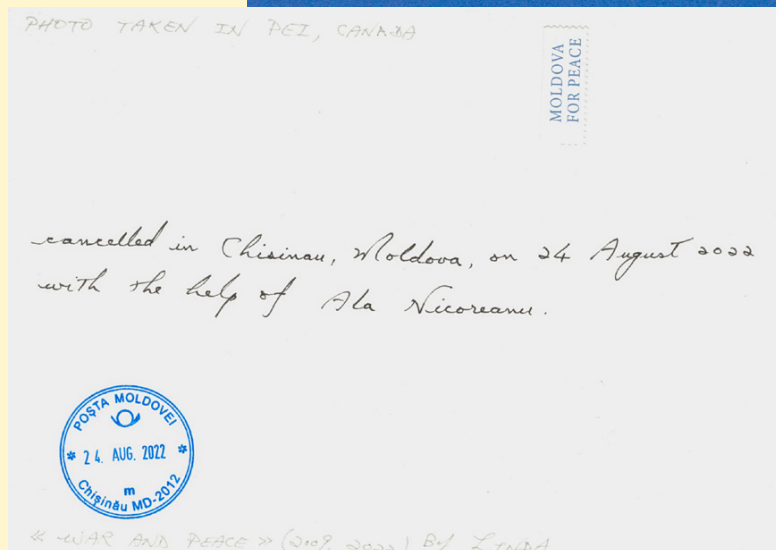 PHOTO TAKEN IN PEI, CANADA
MOLDOVA
FOR PEACE
cancelled in Chisinau, Moldova, on 24 August 2022
with the help of Ala Nicoreanu.
POȘTA MOLDOVEI
24. AUG. 2022
m
Chișinău MD-2012
« WAR AND PEACE » (2009, 2022) By LYNDA